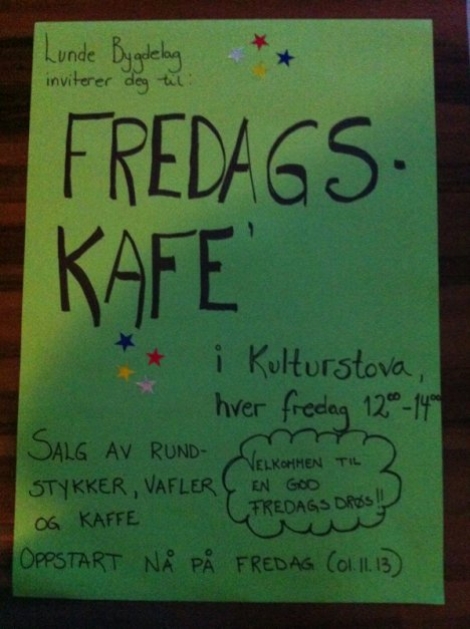 Lunde Bygdelag
inviterer deg til:
FREDAGS-
KAFE'
i Kulturstova,
hver fredag 12⁰⁰-14⁰⁰
SALG AV RUND-
STYKKER, VAFLER
OG KAFFE
VELKOMMEN TIL
EN GOD
FREDAGSDRØS!!
OPPSTART NÅ PÅ FREDAG (01.11.13)